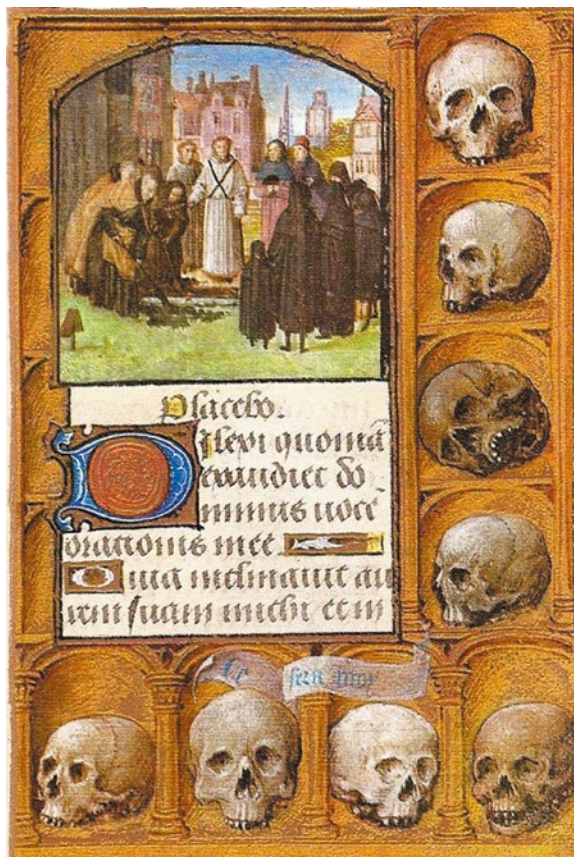 Placebo.
Dilexi quoniã
exaudiet do
minus uocẽ
orationis mee
Quia inclinauit au
rem suam michi et in
Ce sera moy